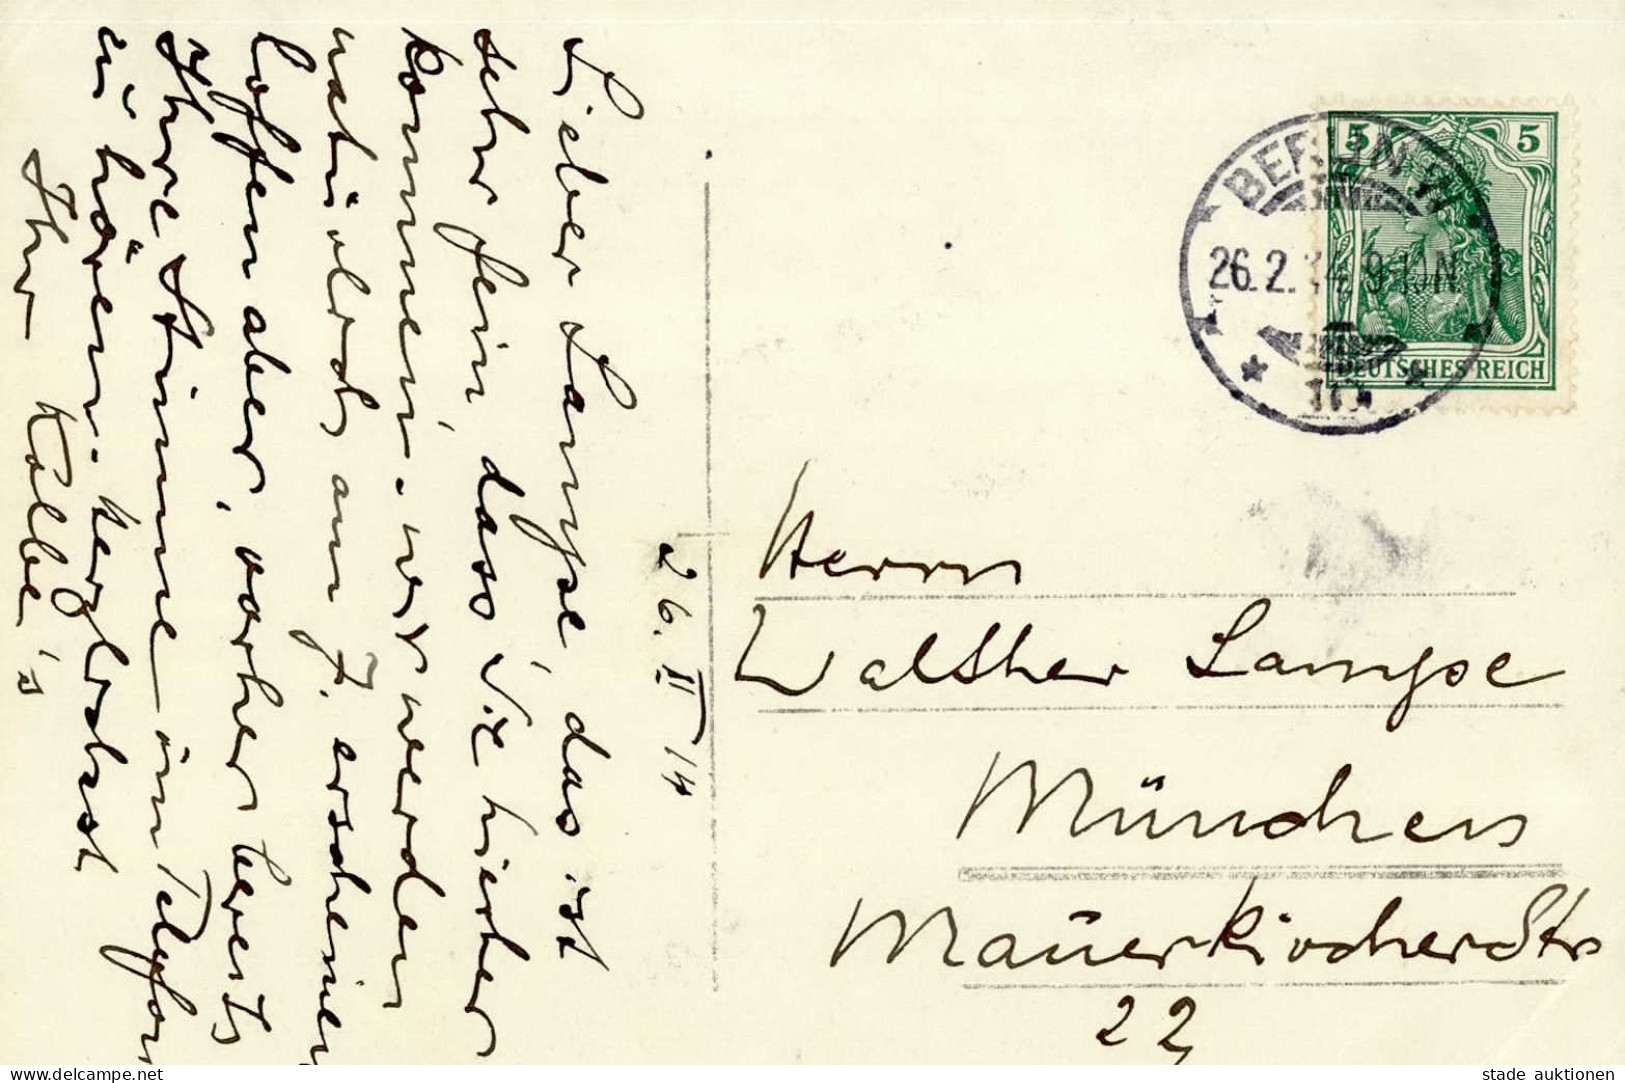 26. II 14
Lieber Lampe, das ist
sehr fein, dass Sie hierher
kommen. wir werden
natürlich am 7. erscheinen
hoffen aber, vorher bereits
Ihre Stimme im Telefon
zu hören. Herzlichst
Ihr Kolbe's
BERLIN W.
26.2.14. 9-10N
5 5
DEUTSCHES REICH
Herrn
Walther Lampe
München
Mauerkircherstr
22
stade auktionen
https://www.delcampe.net